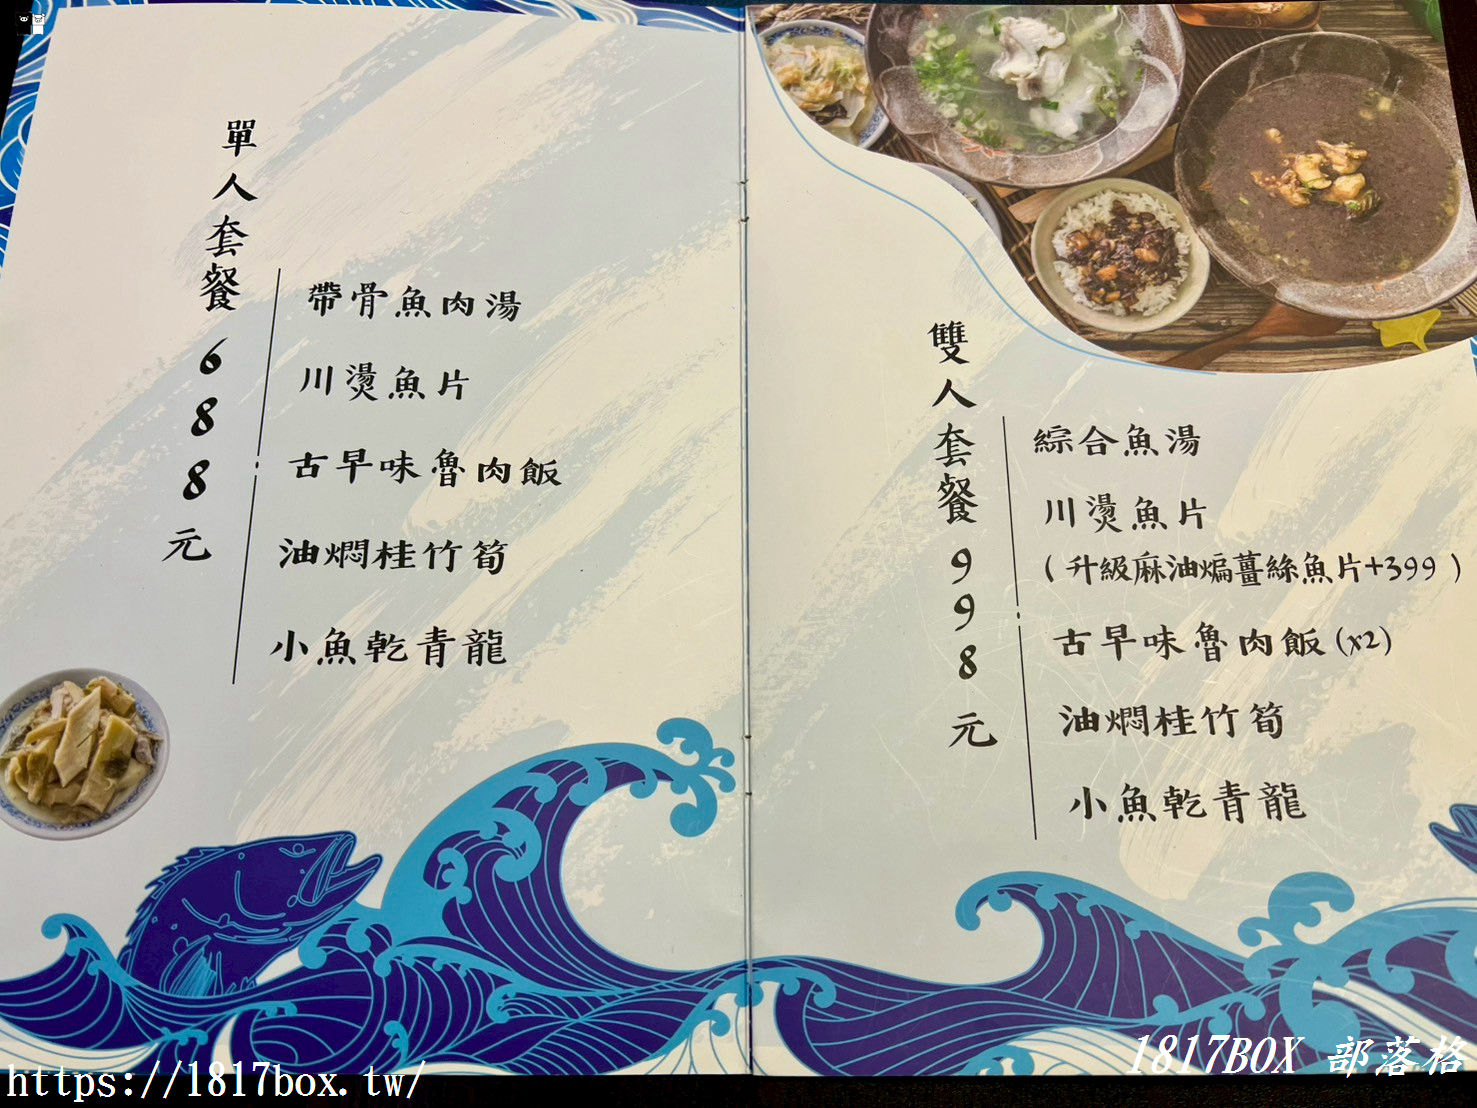 單人套餐688元
帶骨魚肉湯
川燙魚片
古早味魯肉飯
油燜桂竹筍
小魚乾青龍
雙人套餐998元
綜合魚湯
川燙魚片
(升級麻油煸薑絲魚片+399)
古早味魯肉飯(x2)
油燜桂竹筍
小魚乾青龍
https://1817box.tw/
1817BOX 部落格